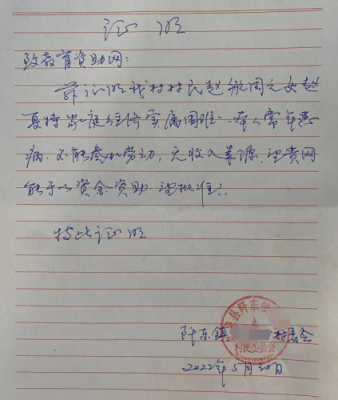 证明
致教育资助网：
兹证明我村村民赵敏周之女赵
夏特 家庭经济实属困难，本人常年患
病，不能参加劳动，无收入来源，望贵网
能予以资金资助，望批准！
特此证明
阡东镇 村委会
2022年5月20日